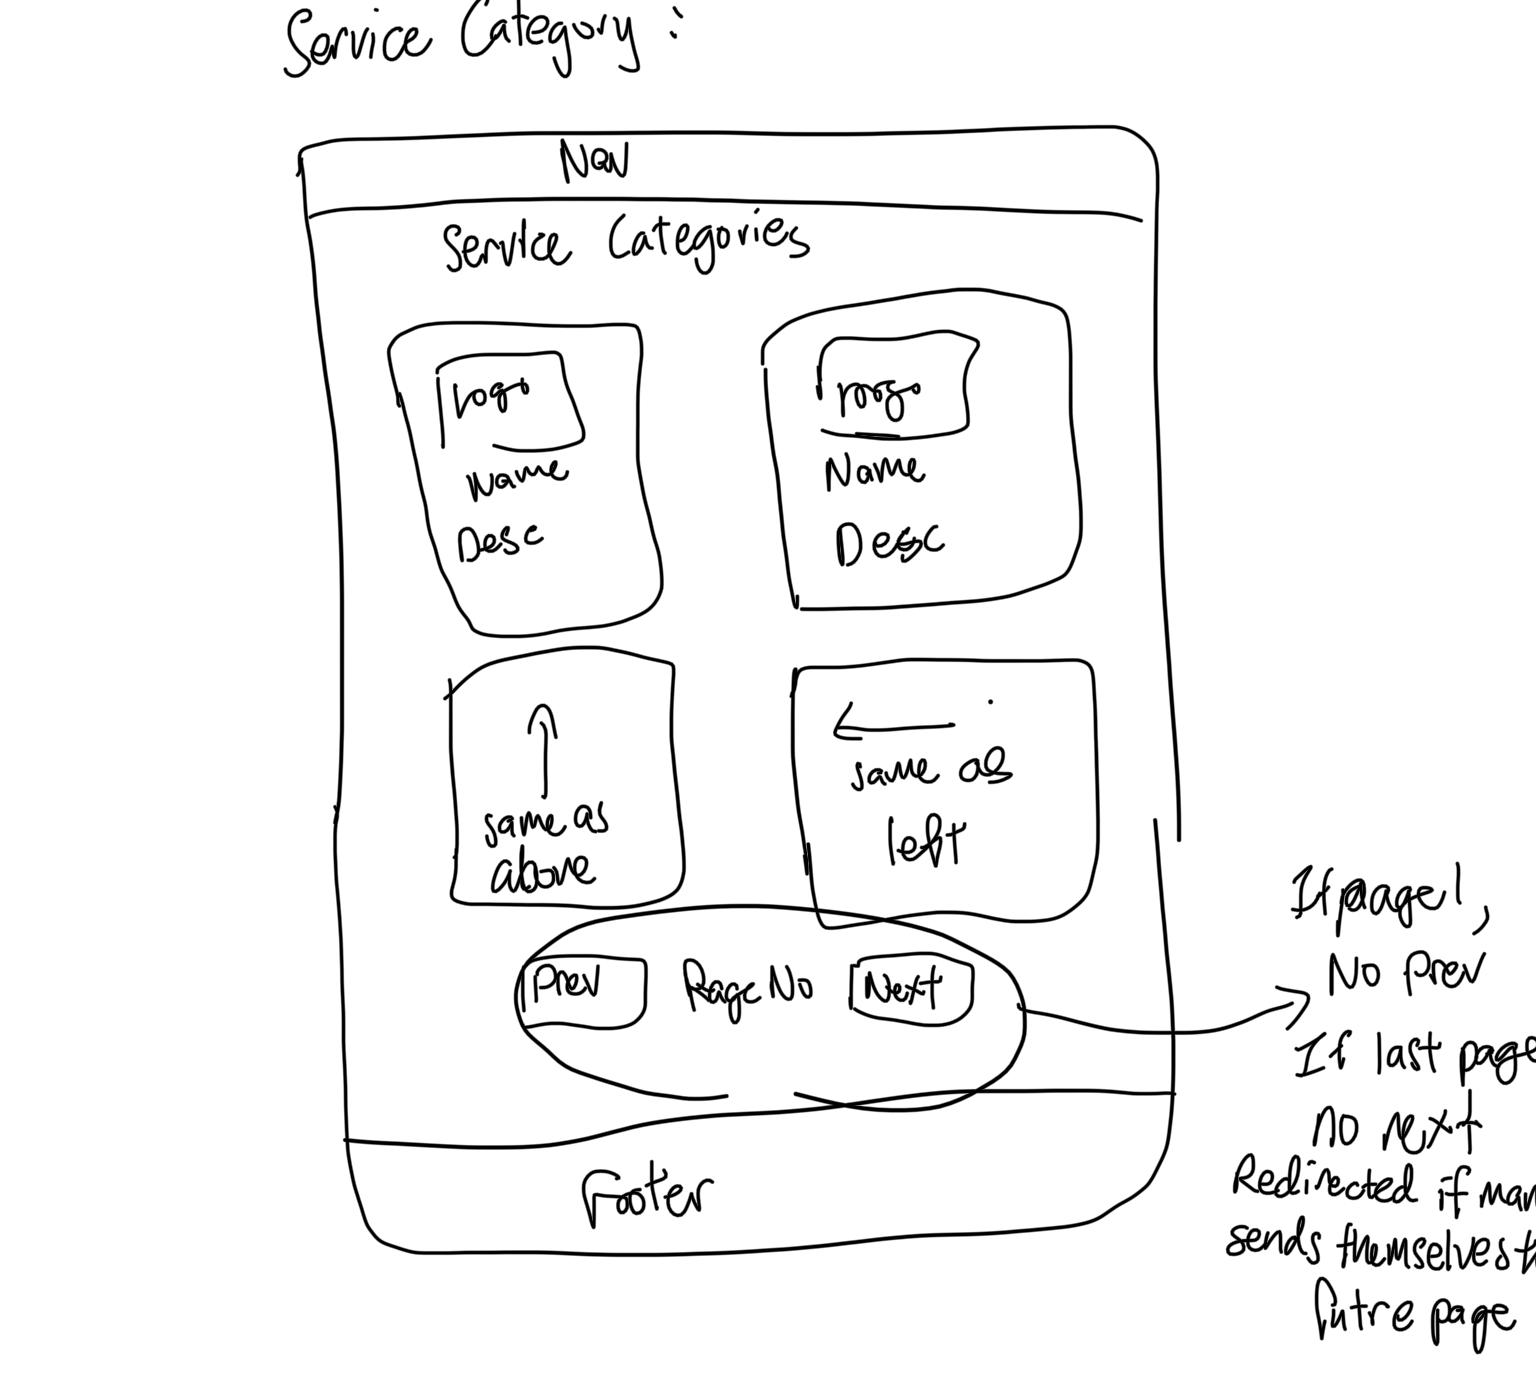 Service Category :
Nav
Service Categories
Logo
Name
Desc
Logo
Name
Desc
same as
above
same as
left
Prev
Page No
Next
If page 1,
No Prev
If last page
no next
Redirected if man
sends themselves t
futre page
Footer